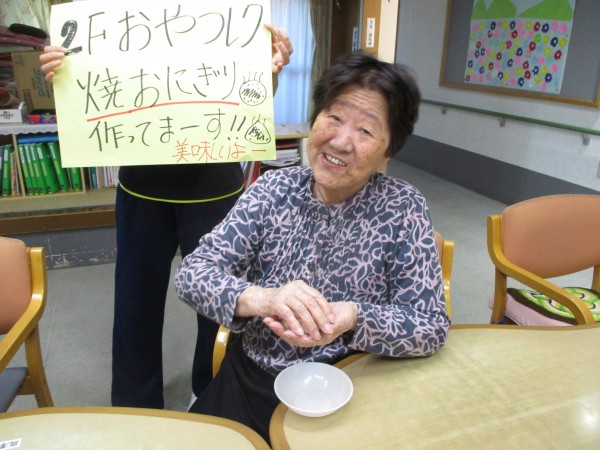 2Fおやつレク
焼おにぎり
作ってまーす!!
美味しいよー